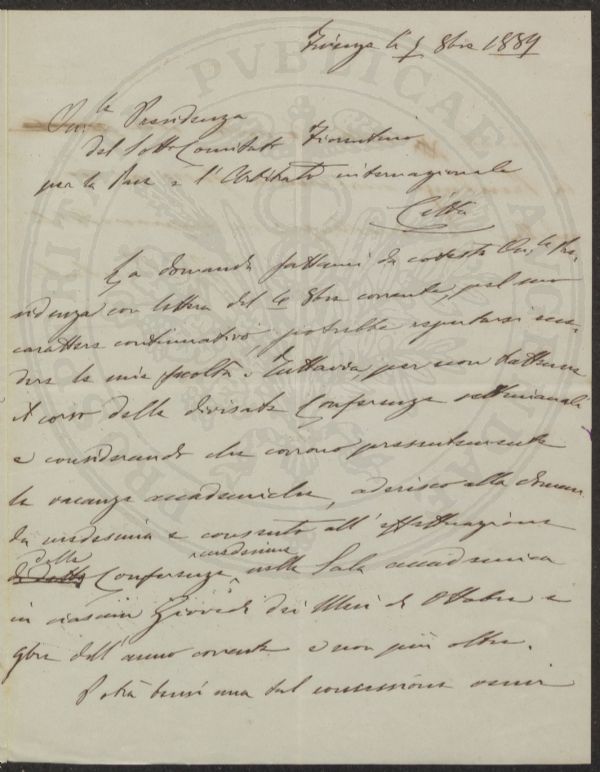 Firenze li 8bre 1889
On.le Presidenza
del Sotto Comitato Fiorentino
per la Pace e l'Arbitrato internazionale
Città
La domanda fattami da codesta On.le Pre-
sidenza con lettera del 4 8bre corrente, pel suo
carattere continuativo, potrebbe reputarsi ecce-
dere le mie facoltà. Tuttavia, per non trattenere
il corso delle divisate Conferenze settimanali
e considerando che corrono presentemente
le vacanze accademiche, aderisco alla doman-
da medesima e consento all'effettuazione
delle Conferenze medesime nella Sala accademica
in ciascun Giovedì dei Mesi di Ottobre e
9bre dell'anno corrente e non più oltre.
Potrà bensì una tal concessione venir
PROSPERITATI PVBLICAE AVGENDAE